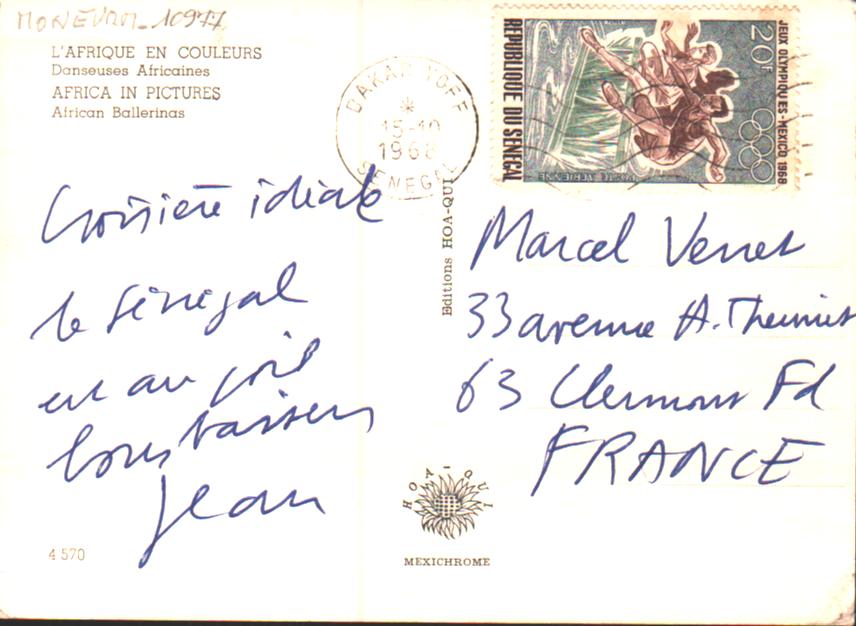 MONEVAM-10977
L'AFRIQUE EN COULEURS
Danseuses Africaines
AFRICA IN PICTURES
African Ballerinas
DAKAR YOFF
15-10
1968
SENEGAL
REPUBLIQUE DU SENEGAL
20F
JEUX OLYMPIQUES-MEXICO 1968
POSTE AERIENNE
Croisière idéale
le Sénégal
est au poil
bons baisers
Jean
4 570
Editions HOA-QUI
HOA-QUI
MEXICHROME
Marcel Verret
33 avenue A.
63 Clermont Fd
FRANCE